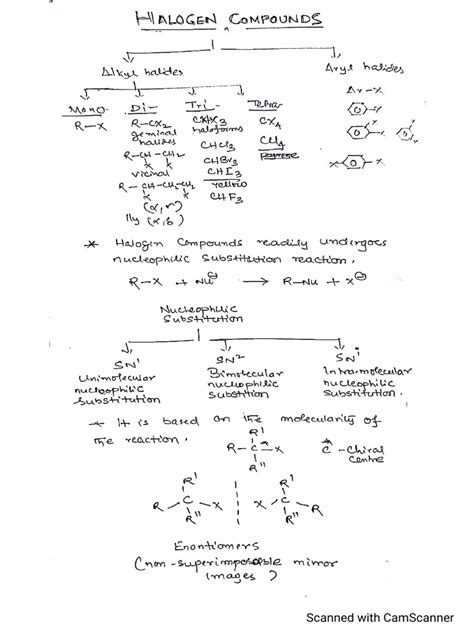 HALOGEN COMPOUNDS
Alkyl halides
Aryl halides
Mono-
R-X
Di-
R-CX2
geminal
halides
R-CH-CH2
X X
vicinal
R-CH-CH2-CH2
X X
(α,γ)
lly (α,δ)
Tri-
CHX3
haloforms
CHCl3
CHBr3
CHI3
yellow
CHF3
Tetra-
CX4
CCl4
Pyrene
Ar-X
X
X
X
X
X
X X
* Halogen Compounds readily undergoes
nucleophilic Substitution reaction.
R-X + Nu⊖ → R-Nu + X⊖
Nucleophilic
Substitution
SN1
Unimolecular
nucleophilic
Substitution
SN2
Bimolecular
nucleophilic
Substition
SNi
Intramolecular
nucleophilic
Substitution
* it is based on the molecularity of
the reaction.
R'
R-C*-X
R"
C* - Chiral
Centre
R' R'
R-C-X X-C-R
R" R"
Enontiomers
(non-superimposable mirror
images)
Scanned with CamScanner